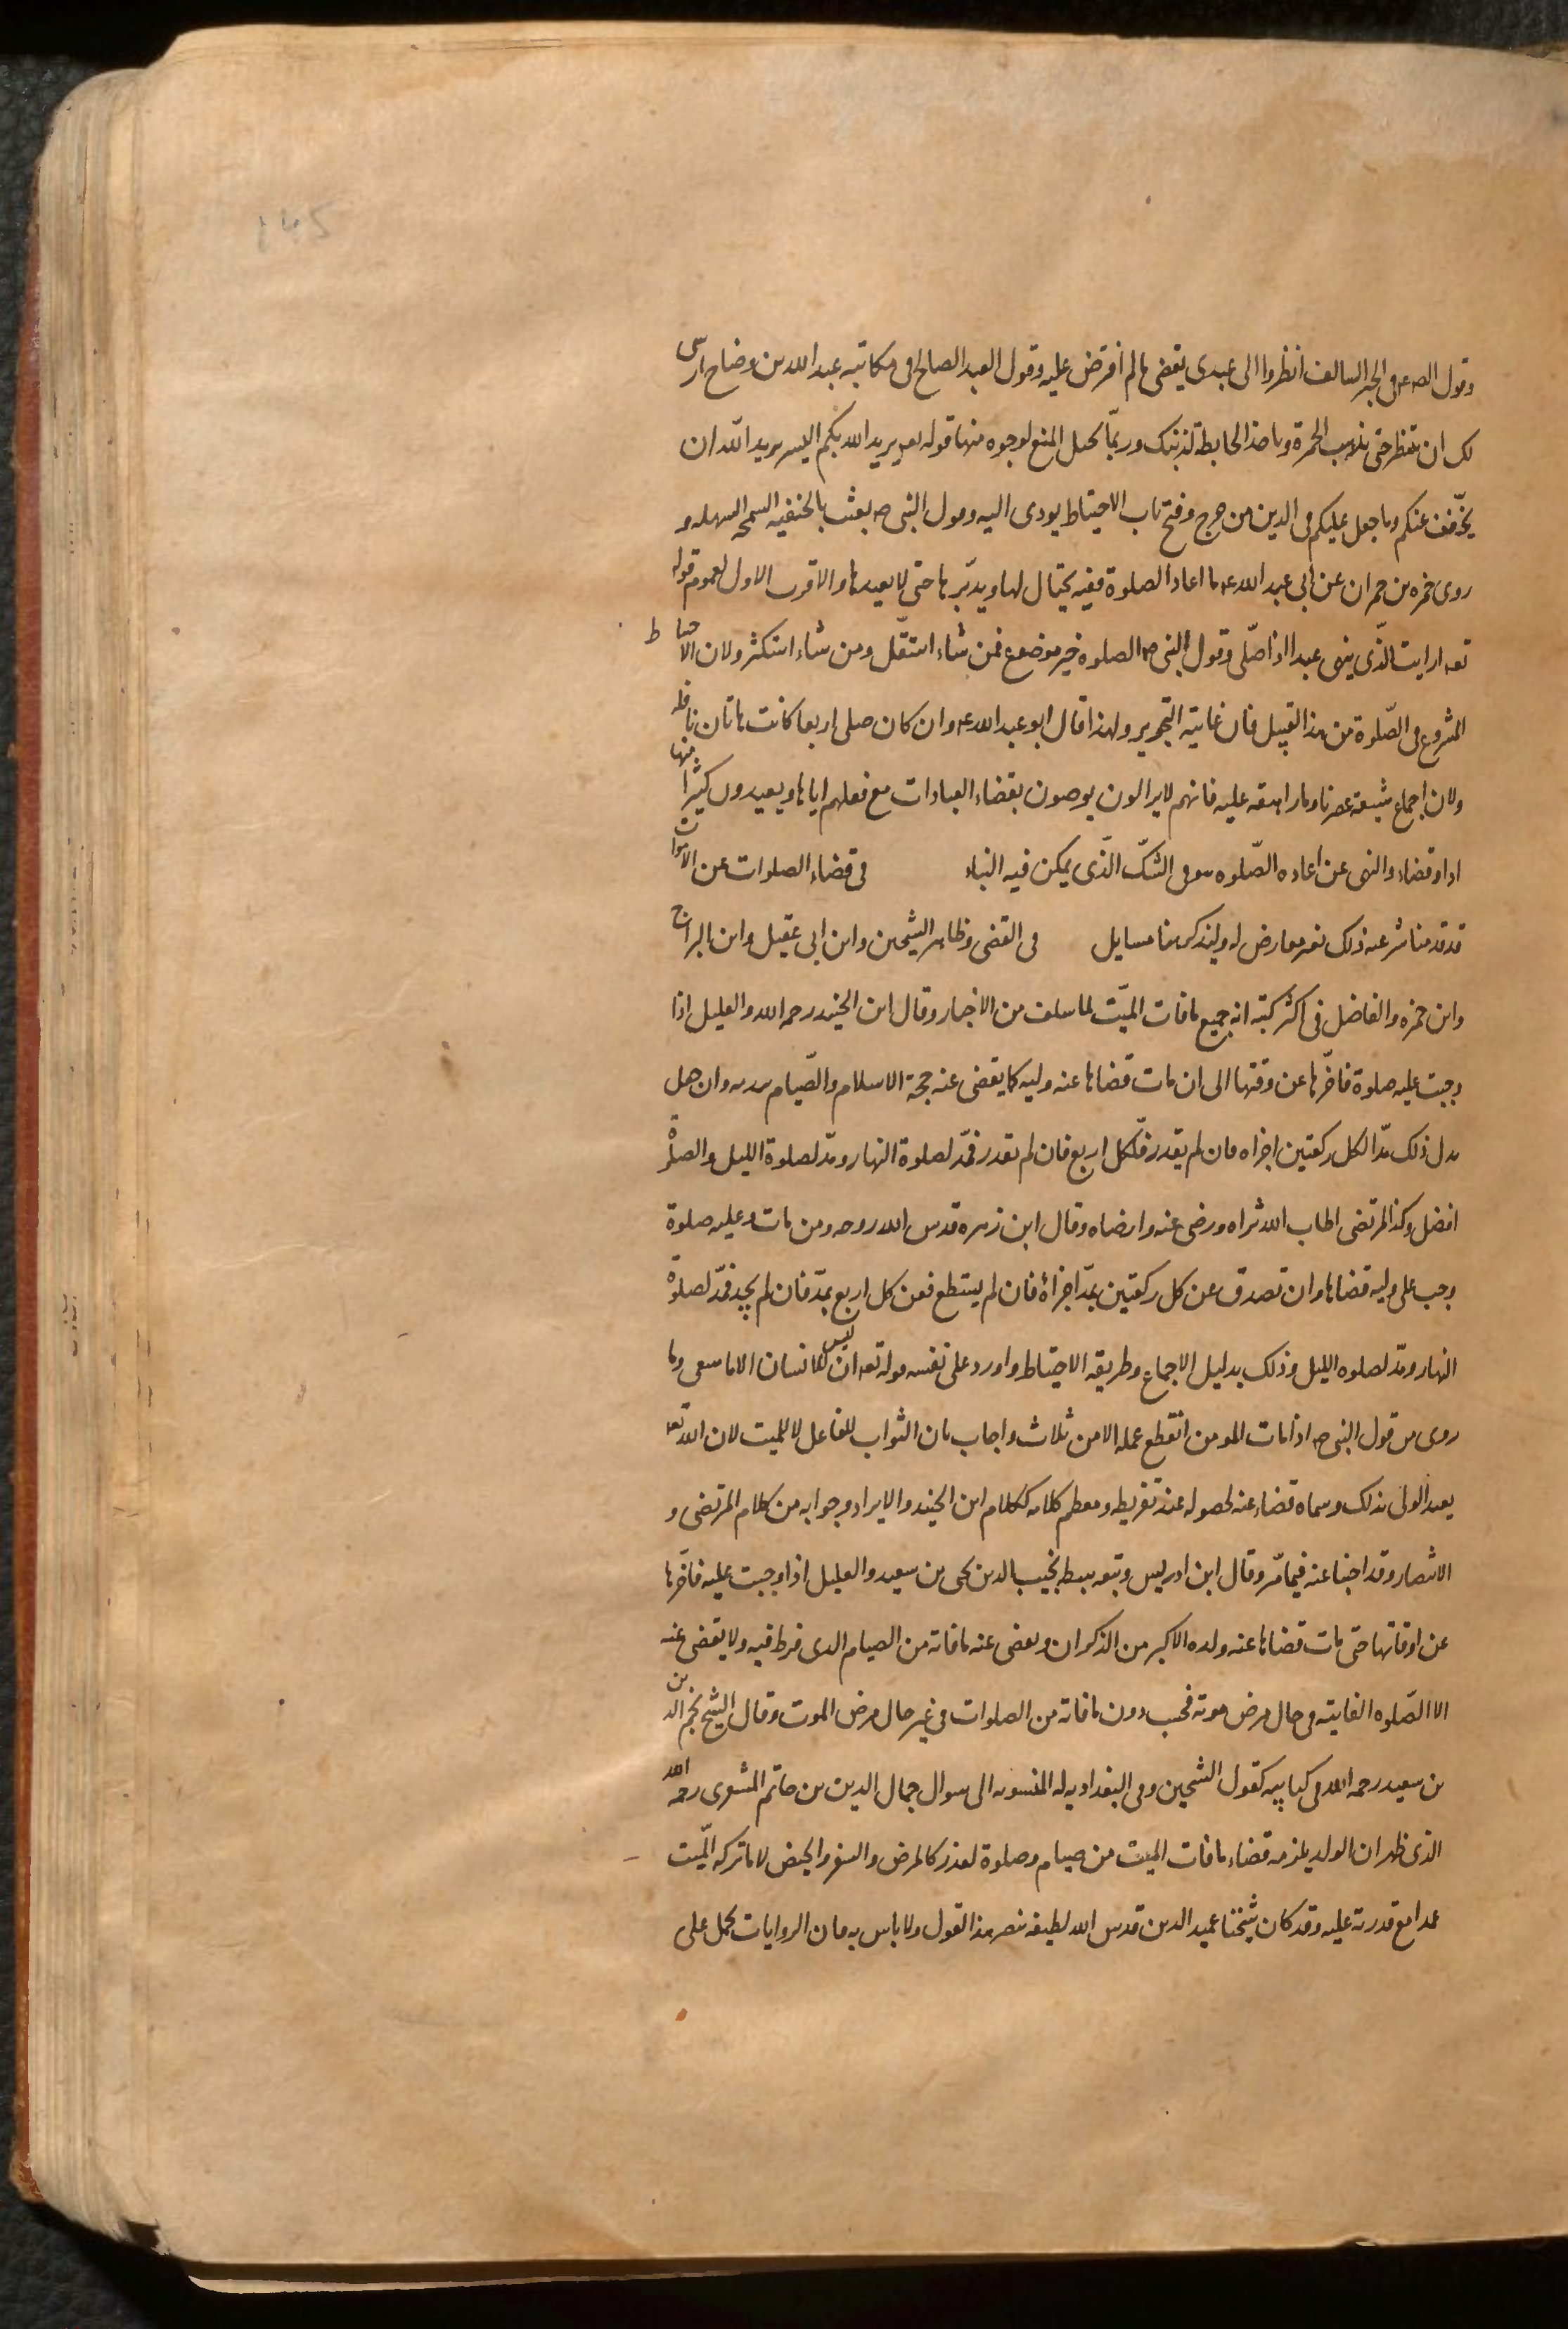 وقول الله عه فى الخبر السالف انظروا الى عبدى يقضى ما لم افترض عليه وقول العبد الصالح فى مكاتبه عبد الله بن وضاح ارى
لك ان تنتظر حتى تذهب الحمرة وياخذ الحايطة لدينك وربّما يحيل المنع لوجوه منها قوله تعه يريد الله بكم اليسر يريد الله ان
يخّفف عنكم وما جعل عليكم فى الدين من حرج وفتح باب الاحتياط يودى اليه وقول النبى صه بعثت بالحنفيه السمحه السهله و
روى حمزه بن حمران عن ابى عبد الله عه ما اعاد الصلوة فقيه يحتال لها ويدبّرها حتى لا يعيدها والاقرب الاول لعموم قوله
تعه ارايت الّذى ينهى عبدا اذا صلّى وقول النبى صه الصلوه خير موضوع فمن شاء استقّل ومن شاء استكثر ولان الاحتياط
المشروع فى الصّلوة من هذا القبيل فان غايته التجويز ولهذا قال ابو عبد الله عه وان كان صلى اربعا كانت هاتان نافله
ولان اجماع شيعة عصرنا وما راهقه عليه فانهم لا يزالون يوصون بقضاء العبادات مع فعلهم اياها ويعيدون كثيرا منها
اداء وقضاء والنهى عن اعاده الصّلوه هو فى الشكّ الّذى يمكن فيه البناء فى قضاء الصلوات عن الاموات
قد قدمنا شرعيه ذلك نعم معارض له وليذكر هنا مسايل فى القضى وظاهر الشيخين وابن ابى عقيل وابن البراج
وابن حمزه والفاضل فى اكثر كتبه انه جميع ما فات الميّت لما سلف من الاخبار وقال ابن الجنيد رحمه الله والعليل اذا
وجبت عليه صلوة فاخّرها عن وقتها الى ان مات قضاها عنه وليه كما يقضى عنه حجة الاسلام والصّيام وان جعل
بدل ذلك مدّا لكل ركعتين اجزاه فان لم يقدر فمدّ لكل اربع فان لم يقدر فمدّ لصلوة النهار ومدّ لصلوة الليل والصلوة
افضل وكذا المرتضى اطاب الله ثراه ورضى عنه وارضاه وقال ابن زهره قدس الله روحه ومن مات وعليه صلوة
وجب على وليه قضاها وان تصدق عن كل ركعتين بمدّ اجزاه فان لم يستطع فعن كل اربع بمدّ فان لم يجد فمدّ لصلوة
النهار ومدّ لصلوه الليل وذلك بدليل الاجماع وطريقه الاحتياط واورد على نفسه قوله تعه ان ليس للانسان الا ما سعى وما
روى من قول النبى صه اذا مات المومن انقطع عمله الا من ثلاث واجاب بان الثواب للفاعل لا للميت لان الله تعه
يعبد الولى بذلك وسماه قضاء عنه لحصوله عند تفريطه ومعظم كلامه ككلام ابن الجنيد والايراد وجوابه من كلام المرتضى و
الانتصار وقد اجبنا عنه فيما مرّ وقال ابن ادريس وتبعه سبطه نجيب الدين يحيى بن سعيد والعليل اذا وجبت عليه فاخّرها
عن اوقاتها حتى مات قضاها عنه ولده الاكبر من الذكران ويقضى عنه ما فاته من الصيام الذى فرط فيه ولا يقضى عنه
الا الصّلوه الفايته فى حال مرض موته فحسب دون ما فاته من الصلوات فى غير حال مرض الموت وقال الشيخ نجم الدين
بن سعيد رحمه الله فى كتابيه كقول الشيخين وفى البغداديه له المنسوبه الى سوال جمال الدين بن حاتم المشغرى رحمه الله
الذى ظهر ان الولد يلزمه قضاء ما فات الميت من صيام وصلوة لعذر كالمرض والسفر والحيض لا ما تركه الميّت
عمدا مع قدرته عليه وقد كان شيخنا عميد الدين قدس الله لطيفه ينصر هذا القول ولا باس به فان الروايات يحمل على